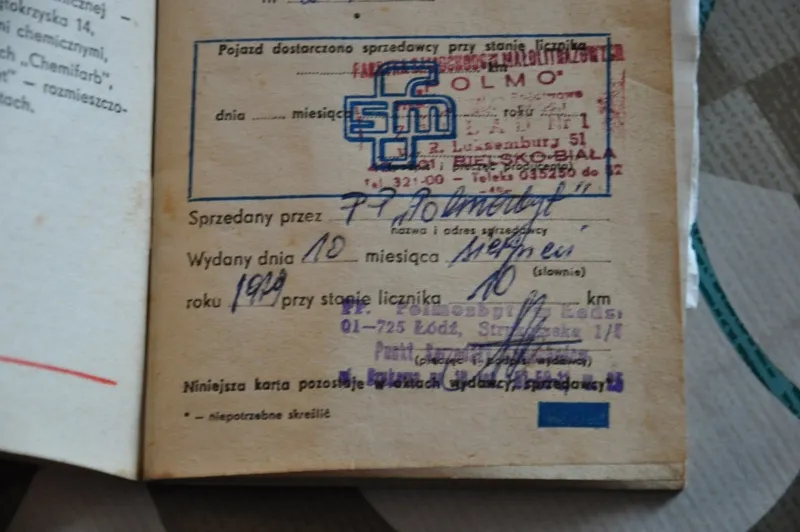 micznej –
ętokrzyska 14,
mi chemicznymi,
ch „Chemifarb",
– rozmieszczo-
tach.
nr
*
Pojazd dostarczono sprzedawcy przy stanie licznika
km
FABRYKA SAMOCHODÓW MAŁOLITRAŻOWYCH
POLMO
dnia miesiąca roku
fsm
ZAKŁAD Nr 1
R. Luksemburg 51
BIELSKO-BIAŁA
(podpis i pieczęć producenta)
Tel. 321-00 – Teleks 035250 do 52
Sprzedany przez PP „Polmozbyt"
nazwa i adres sprzedawcy
Wydany dnia 10 miesiąca sierpień
(słownie)
roku 1979 przy stanie licznika 10 km
PP. Polmozbyt w Łodzi
01-725 Łódź, Strykowska 1/5
Punkt
(pieczęć i podpis wydawcy)
Niniejsza karta pozostaje w aktach wydawcy, sprzedawcy*
* – niepotrzebne skreślić